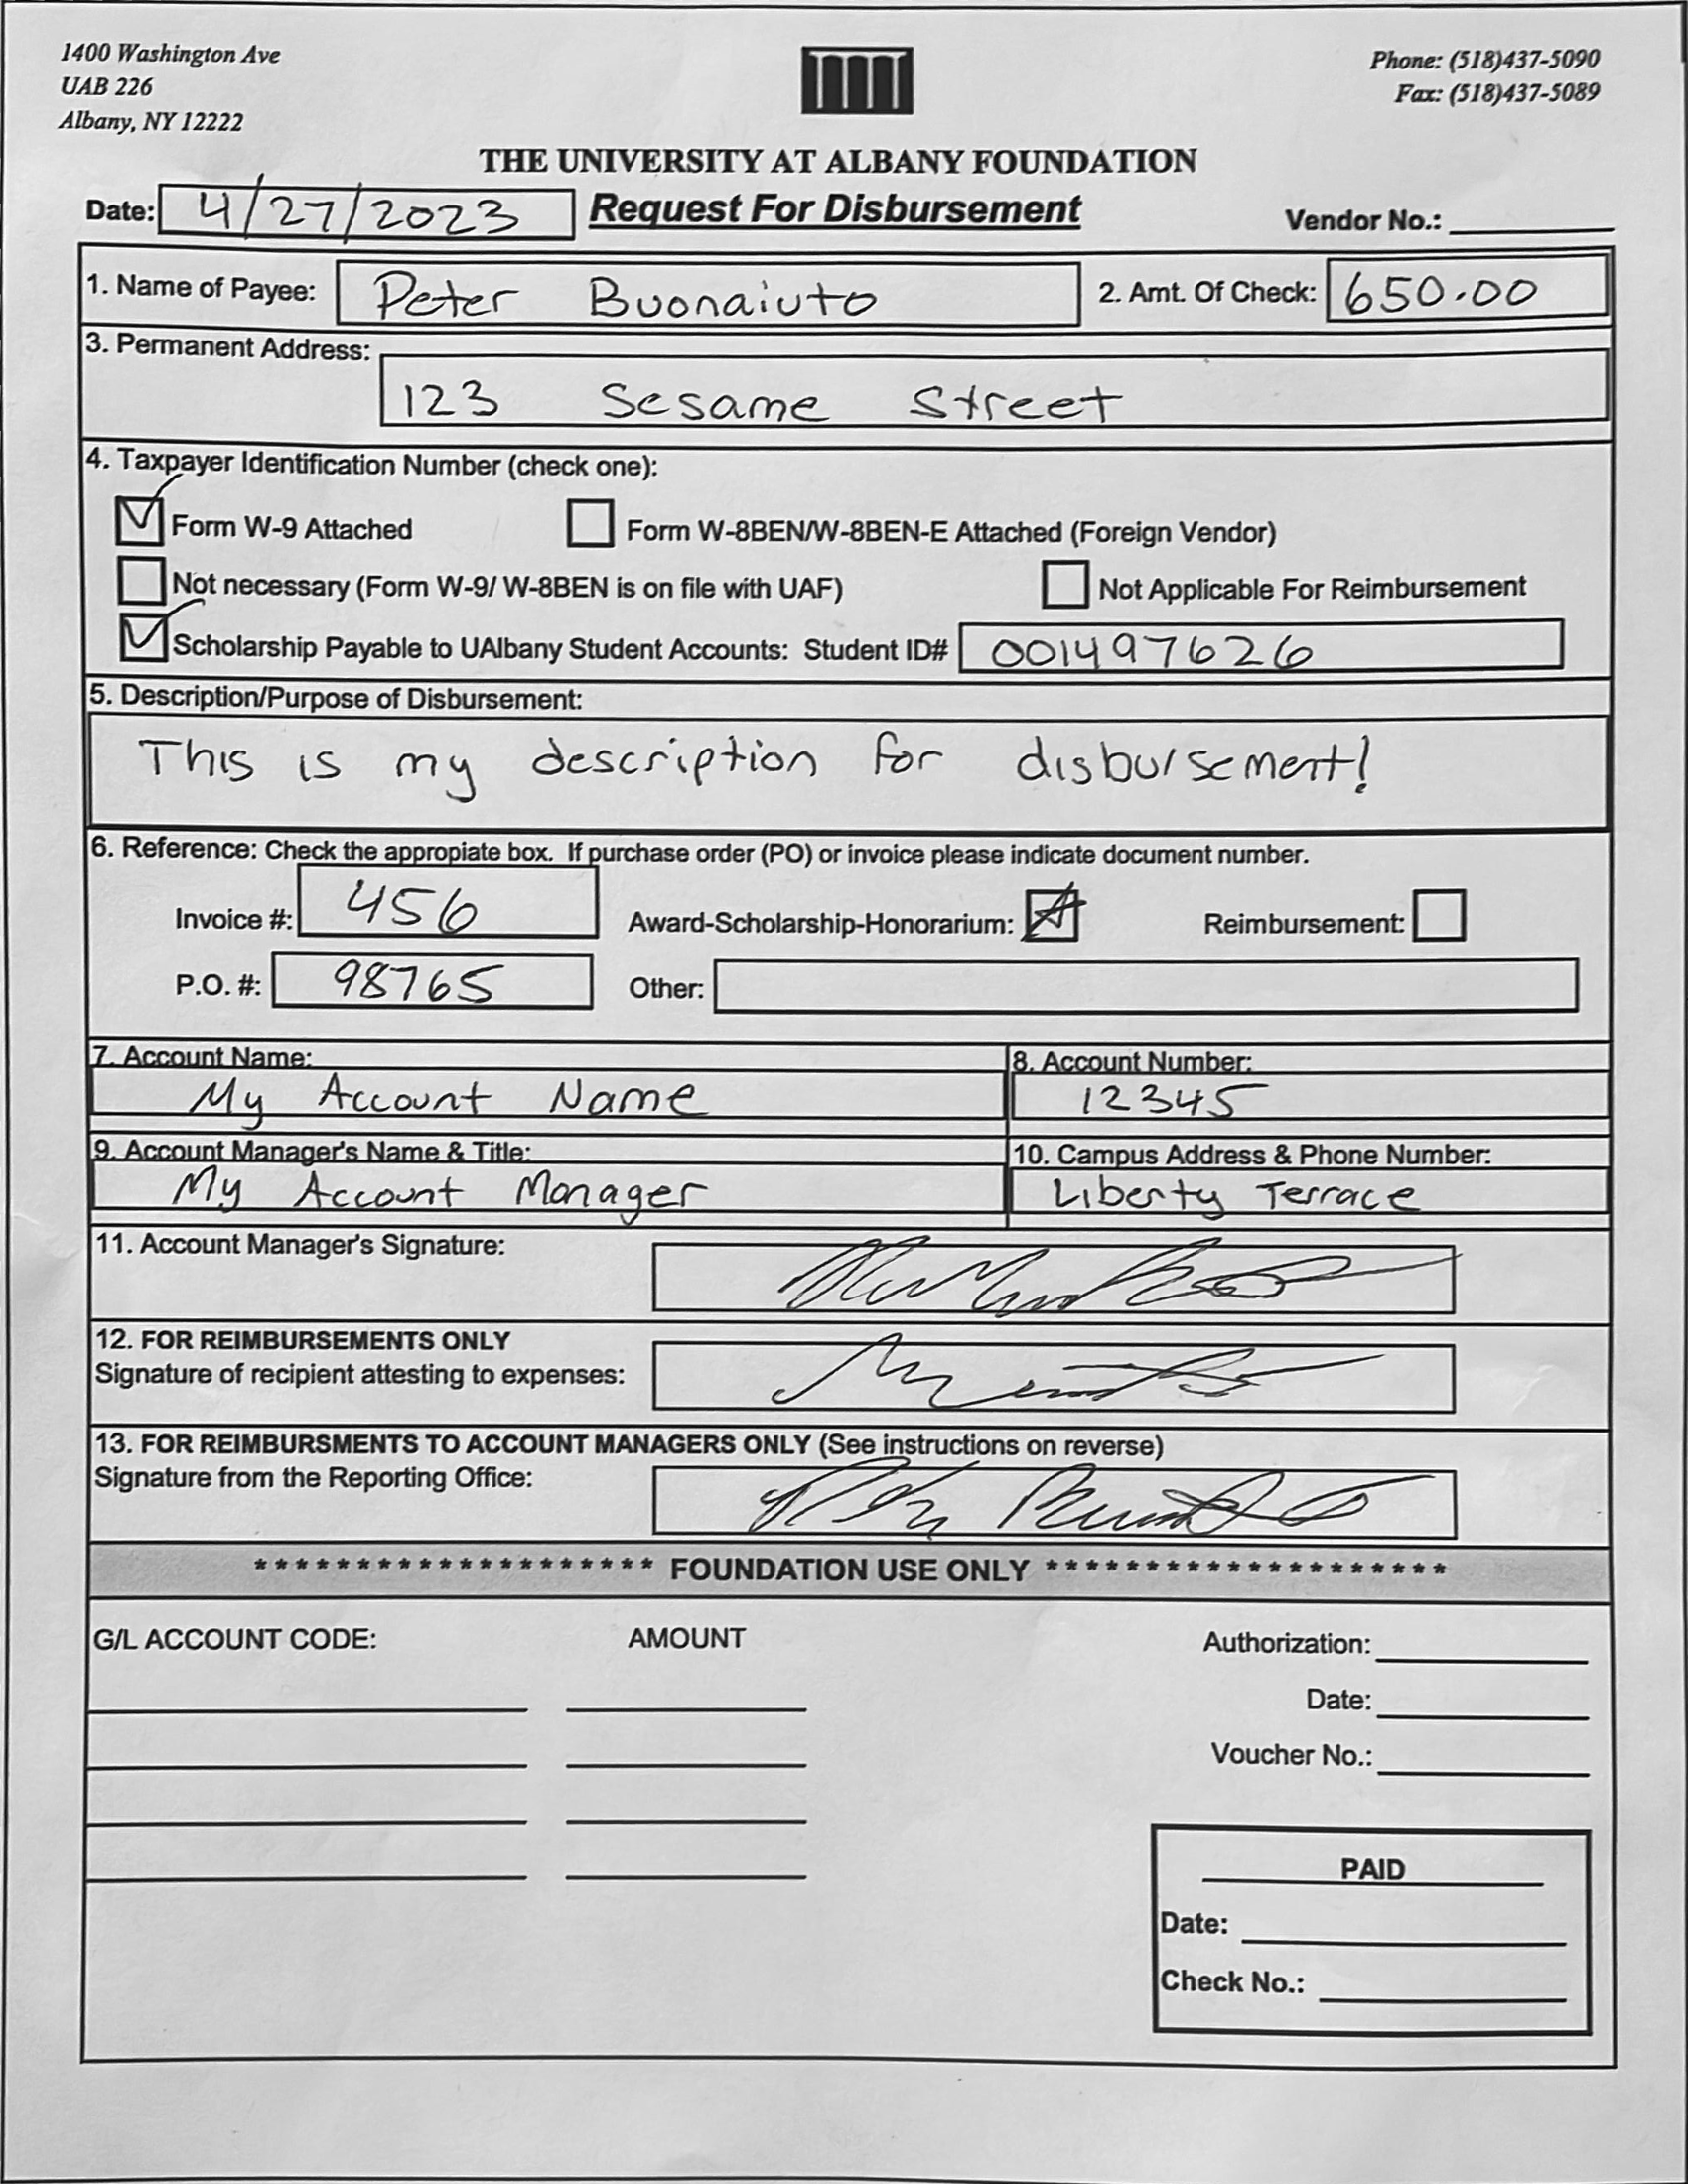 1400 Washington Ave
UAB 226
Albany, NY 12222
Phone: (518)437-5090
Fax: (518)437-5089
THE UNIVERSITY AT ALBANY FOUNDATION
Date: 4/27/2023 Request For Disbursement Vendor No.:
1. Name of Payee: Peter Buonaiuto 2. Amt. Of Check: 650.00
3. Permanent Address:
123 Sesame Street
4. Taxpayer Identification Number (check one):
Form W-9 Attached Form W-8BEN/W-8BEN-E Attached (Foreign Vendor)
Not necessary (Form W-9/ W-8BEN is on file with UAF) Not Applicable For Reimbursement
Scholarship Payable to UAlbany Student Accounts: Student ID# 001497626
5. Description/Purpose of Disbursement:
This is my description for disbursement!
6. Reference: Check the appropiate box. If purchase order (PO) or invoice please indicate document number.
Invoice #: 456 Award-Scholarship-Honorarium: Reimbursement:
P.O. #: 98765 Other:
7. Account Name: 8. Account Number:
My Account Name 12345
9. Account Manager's Name & Title: 10. Campus Address & Phone Number:
My Account Manager Liberty Terrace
11. Account Manager's Signature:
12. FOR REIMBURSEMENTS ONLY
Signature of recipient attesting to expenses:
13. FOR REIMBURSMENTS TO ACCOUNT MANAGERS ONLY (See instructions on reverse)
Signature from the Reporting Office:
******************** FOUNDATION USE ONLY ********************
G/L ACCOUNT CODE: AMOUNT Authorization:
Date:
Voucher No.:
PAID
Date:
Check No.: